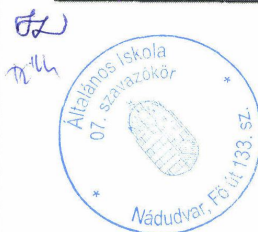 Általános Iskola
07. szavazókör
Nádudvar, Fő út 133. sz.